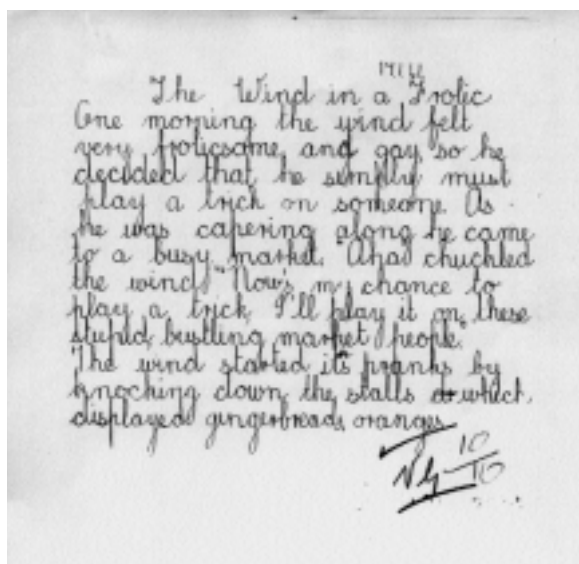 The Wind in a Frolic
One morning the wind felt
very frolicsome and gay so he
decided that he simply must
play a trick on someone. As
he was capering along he came
to a busy market. "Aha" chuckled
the wind "Now's my chance to
play a trick, I'll play it on these
stupid, bustling market people."
The wind started its pranks by
knocking down the stalls which
displayed gingerbreads, oranges
VG 10/10